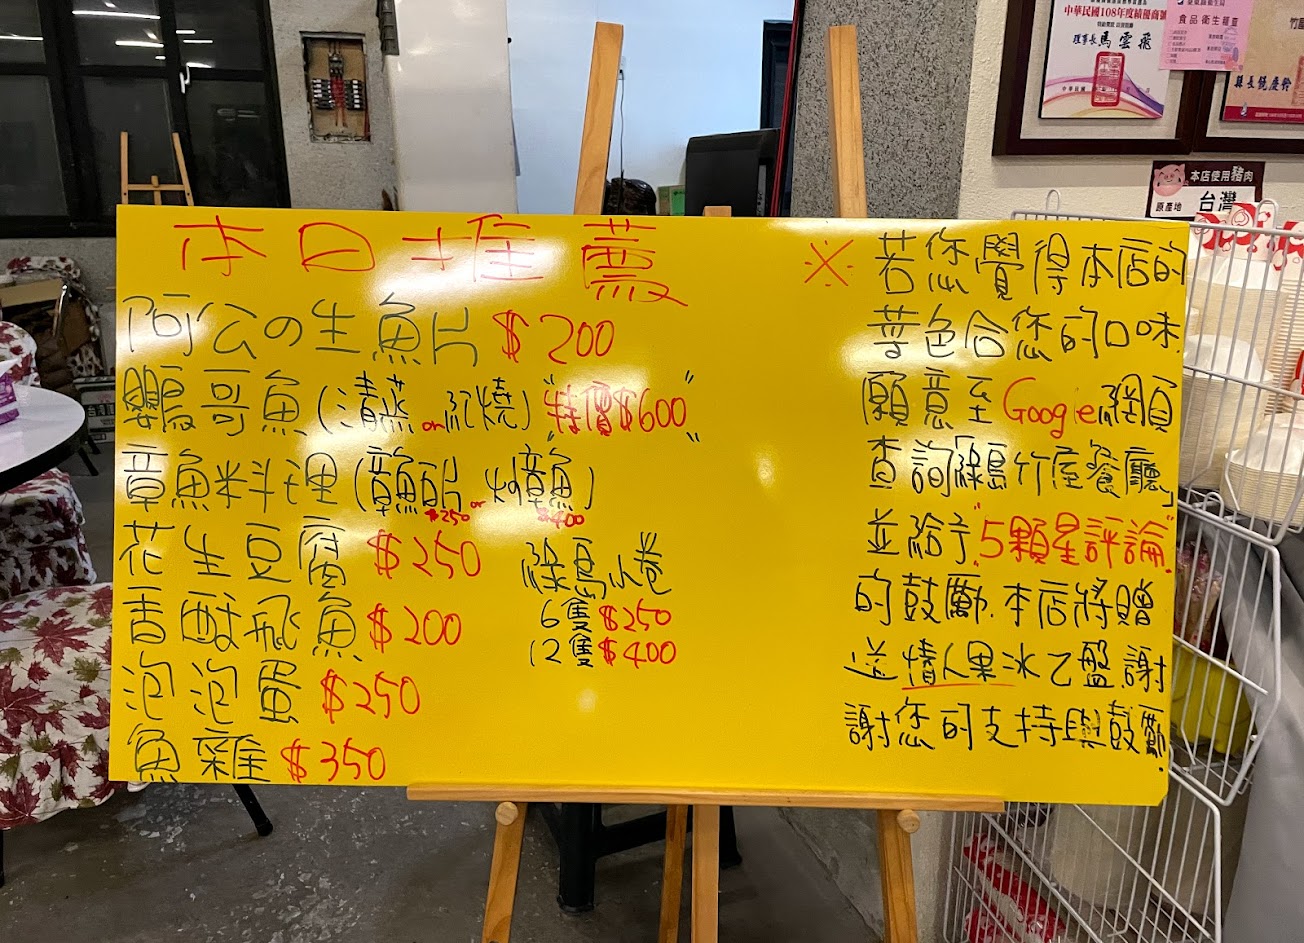 本日推薦
阿公の生魚片 $200
鸚哥魚(清蒸or紅燒)"特價$600"
章魚料理(章魚切片or炒章魚)
$250 $400
花生豆腐 $250
香酥飛魚 $200
泡泡蛋 $250
魚雜 $350
綠島小卷
6隻$250
12隻$400
※若您覺得本店的
菜色合您的口味.
願意至Google網頁
查詢「綠島竹屋餐廳」
並給予"5顆星評論"
的鼓勵.本店將贈
送情人果冰乙盤.謝
謝您的支持與鼓勵.
中華民國108年度績優商號
理事長馬雲飛
食品衛生稽查
縣長饒慶鈴
本店使用豬肉
原產地
台灣